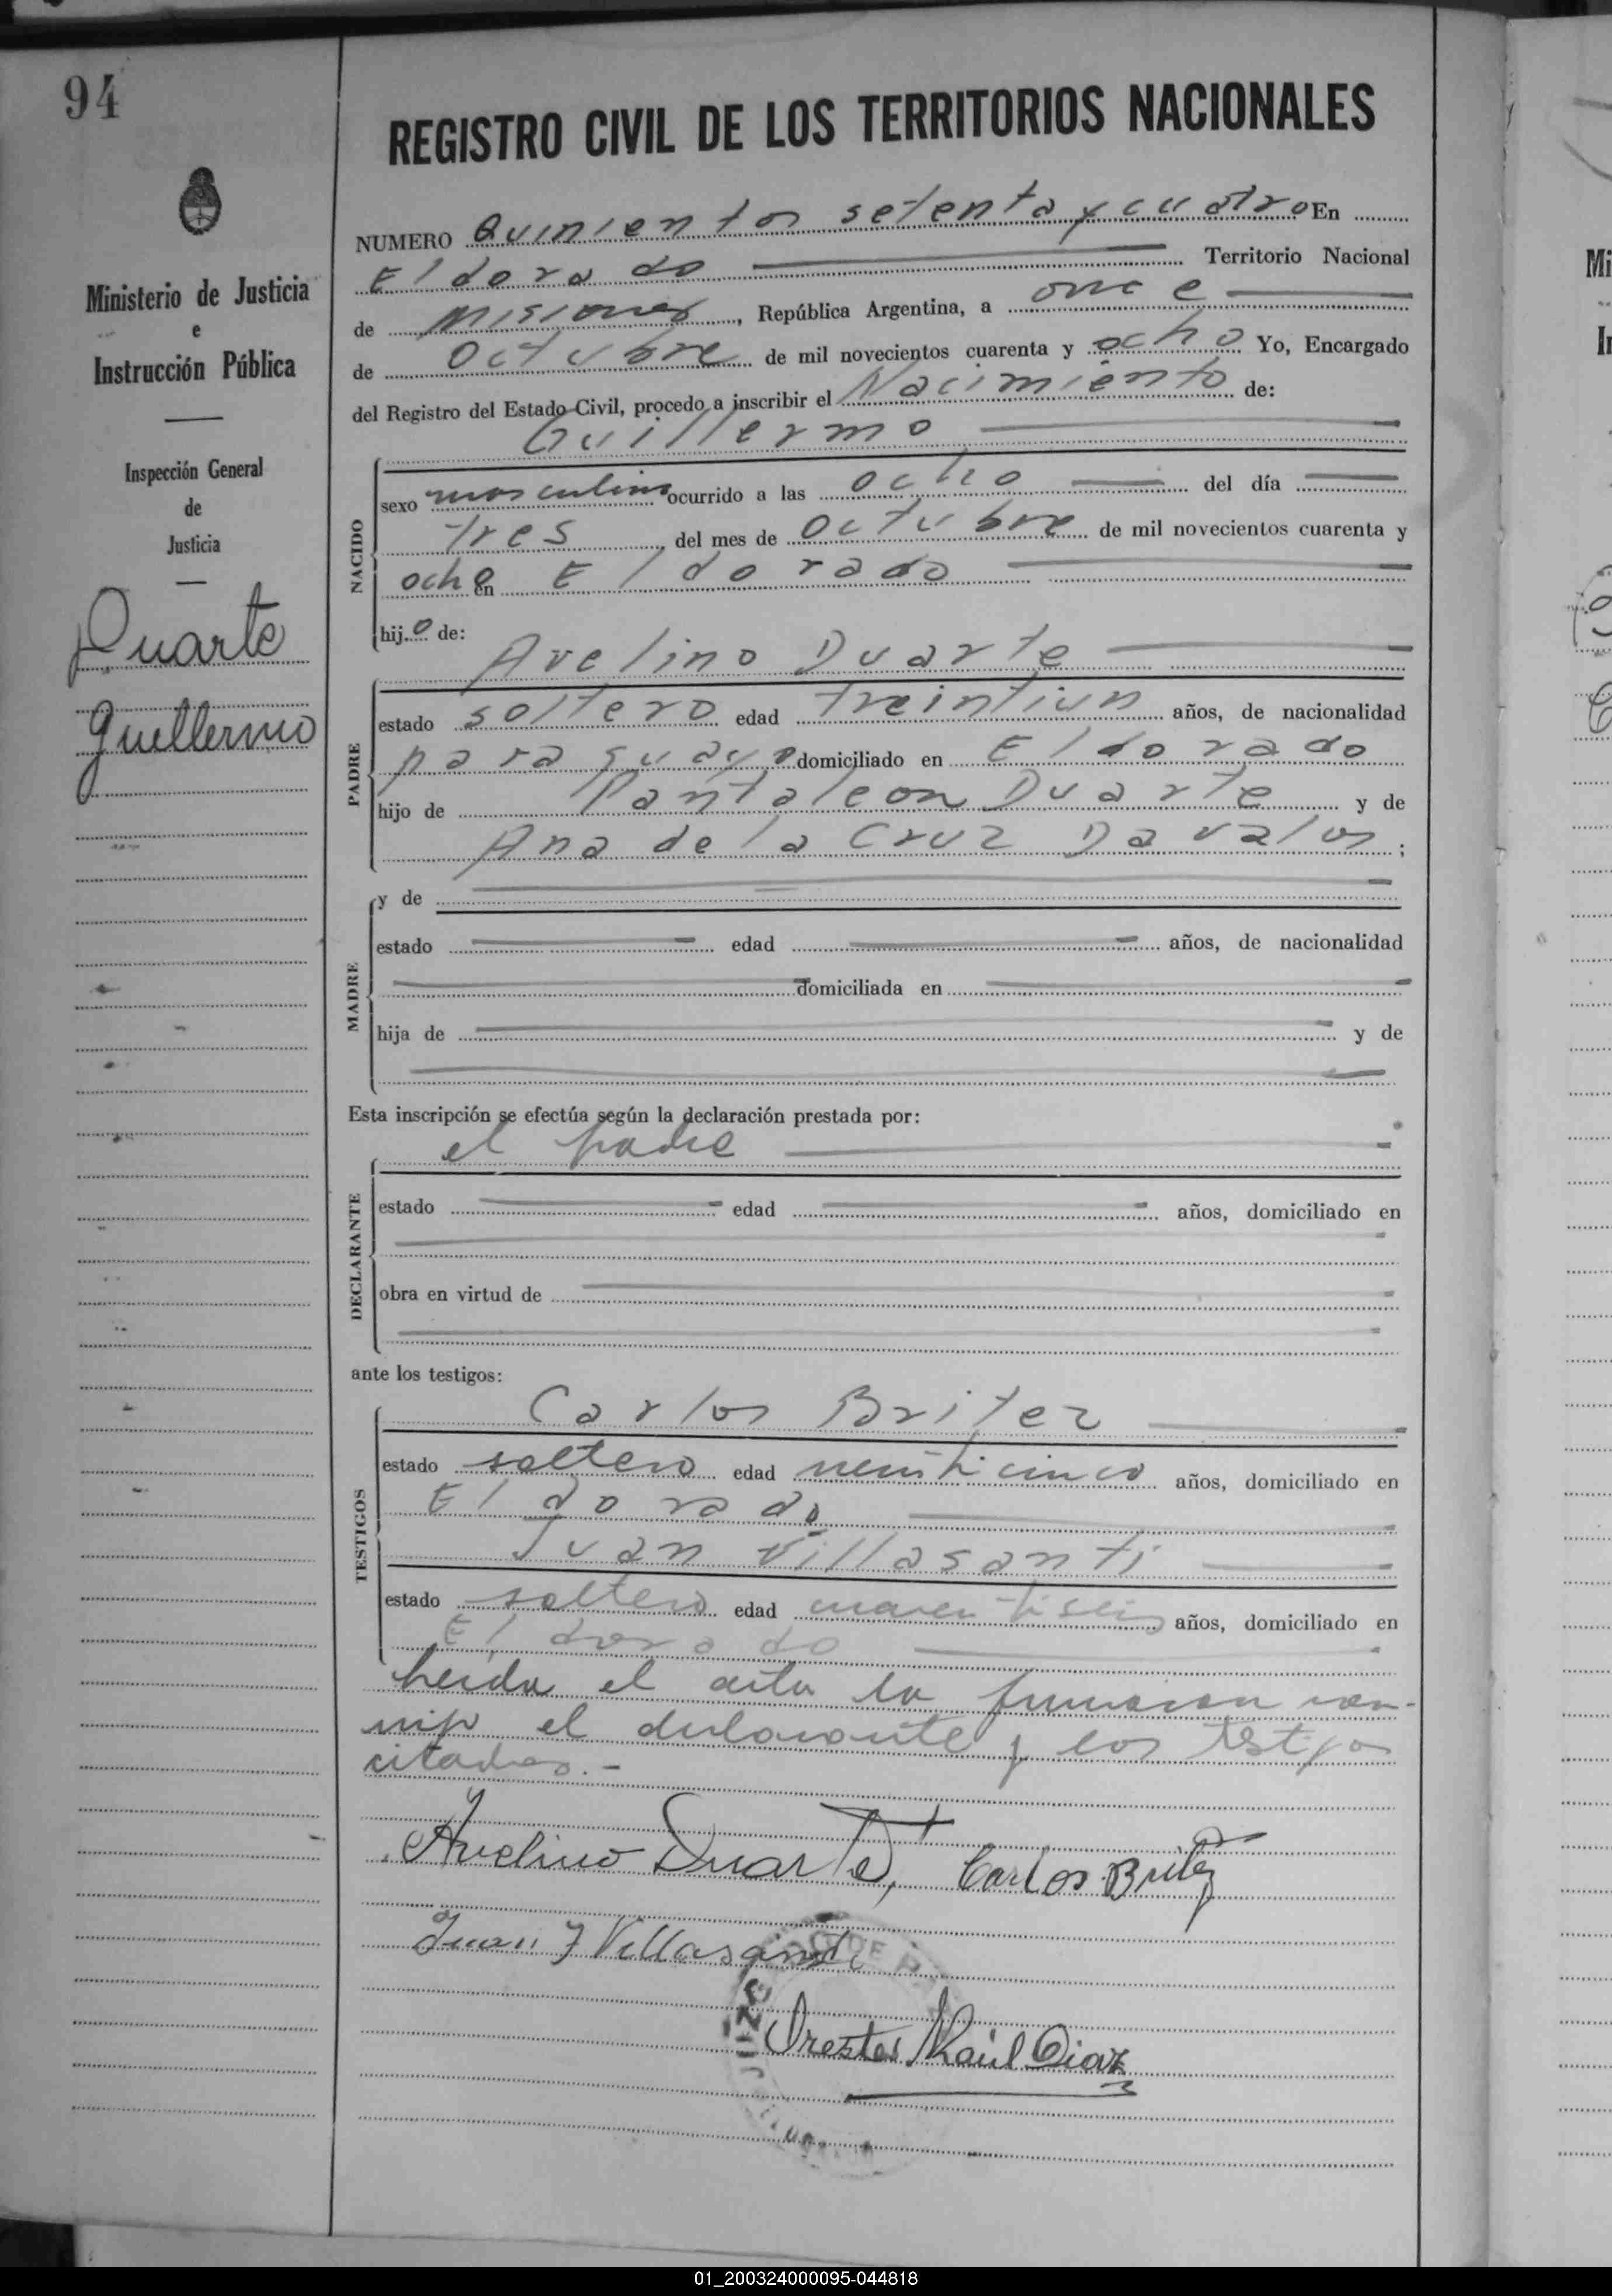 94
REGISTRO CIVIL DE LOS TERRITORIOS NACIONALES
Ministerio de Justicia
e
Instrucción Pública
Inspección General
de
Justicia
Duarte
Guillermo
NUMERO Quinientos setenta y cuatro En
Eldorado Territorio Nacional
de Misiones, República Argentina, a once
de Octubre de mil novecientos cuarenta y ocho Yo, Encargado
del Registro del Estado Civil, procedo a inscribir el Nacimiento de:
Guillermo
NACIDO
sexo masculino ocurrido a las ocho del día
tres del mes de Octubre de mil novecientos cuarenta y
ocho en Eldorado
hijo de:
Avelino Duarte
PADRE
estado soltero edad treintiun años, de nacionalidad
paraguayo domiciliado en Eldorado
hijo de Pantaleon Duarte y de
Ana de la Cruz Davalos;
MADRE
y de
estado edad años, de nacionalidad
domiciliada en
hija de y de
Esta inscripción se efectúa según la declaración prestada por:
el padre
DECLARANTE
estado edad años, domiciliado en
obra en virtud de
ante los testigos:
TESTIGOS
Carlos Britez
estado soltero edad veinticinco años, domiciliado en
Eldorado
Juan Villasanti
estado soltero edad años, domiciliado en
Eldorado
Leida el acta la firmaron con-
migo el declarante y los testigos
citados.-
Avelino Duarte, Carlos Britez
Juan J Villasanti
Orestes Raúl Diaz
01_200324000095-044818